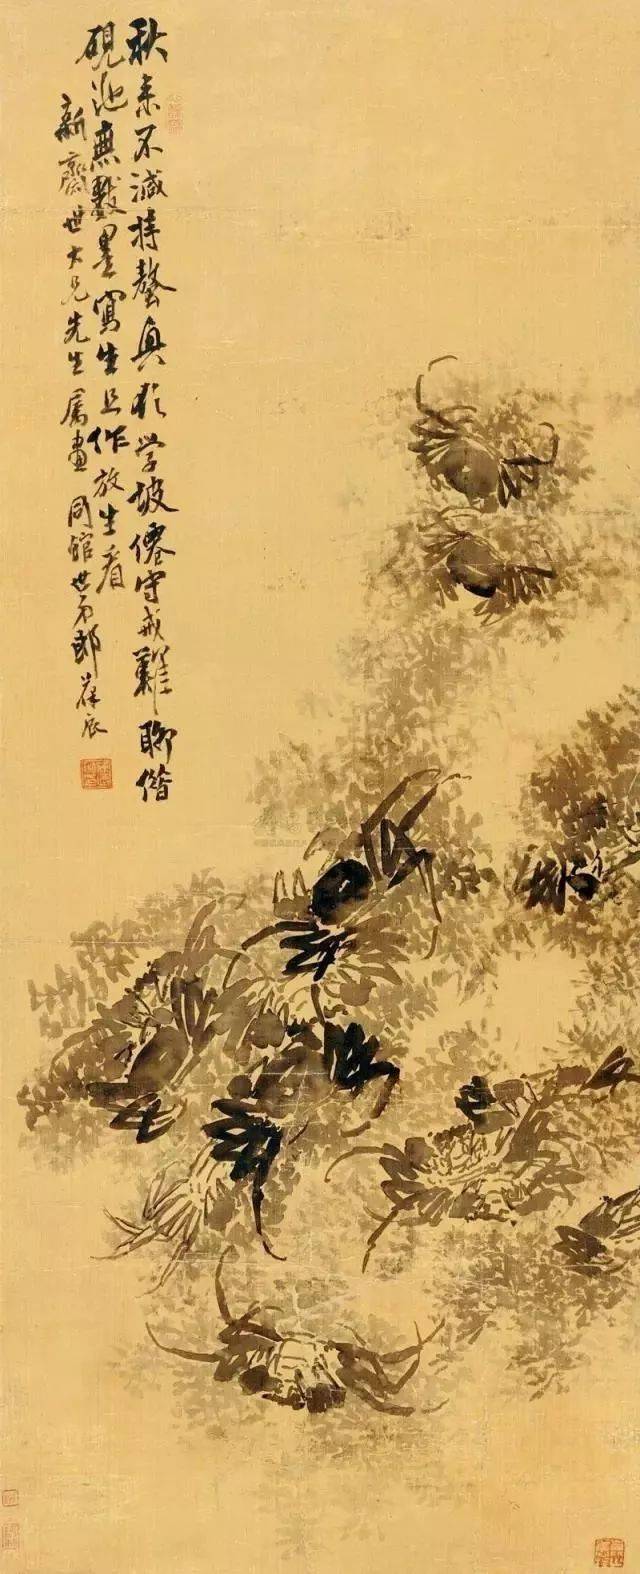 秋来不減持螯興欲学坡僊守戒難聊借
硯池無數墨寫生且作放生看
新齋世大兄先生属畫 同館世弟郎葆辰